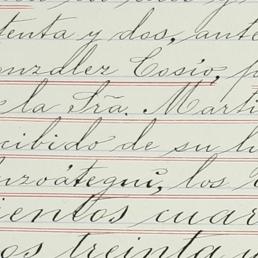 tenta y dos, ante
onzález Cosío, p
e la Sra. Marti
cibido de su
nzoátegui, los
ientos cuar
os treinta